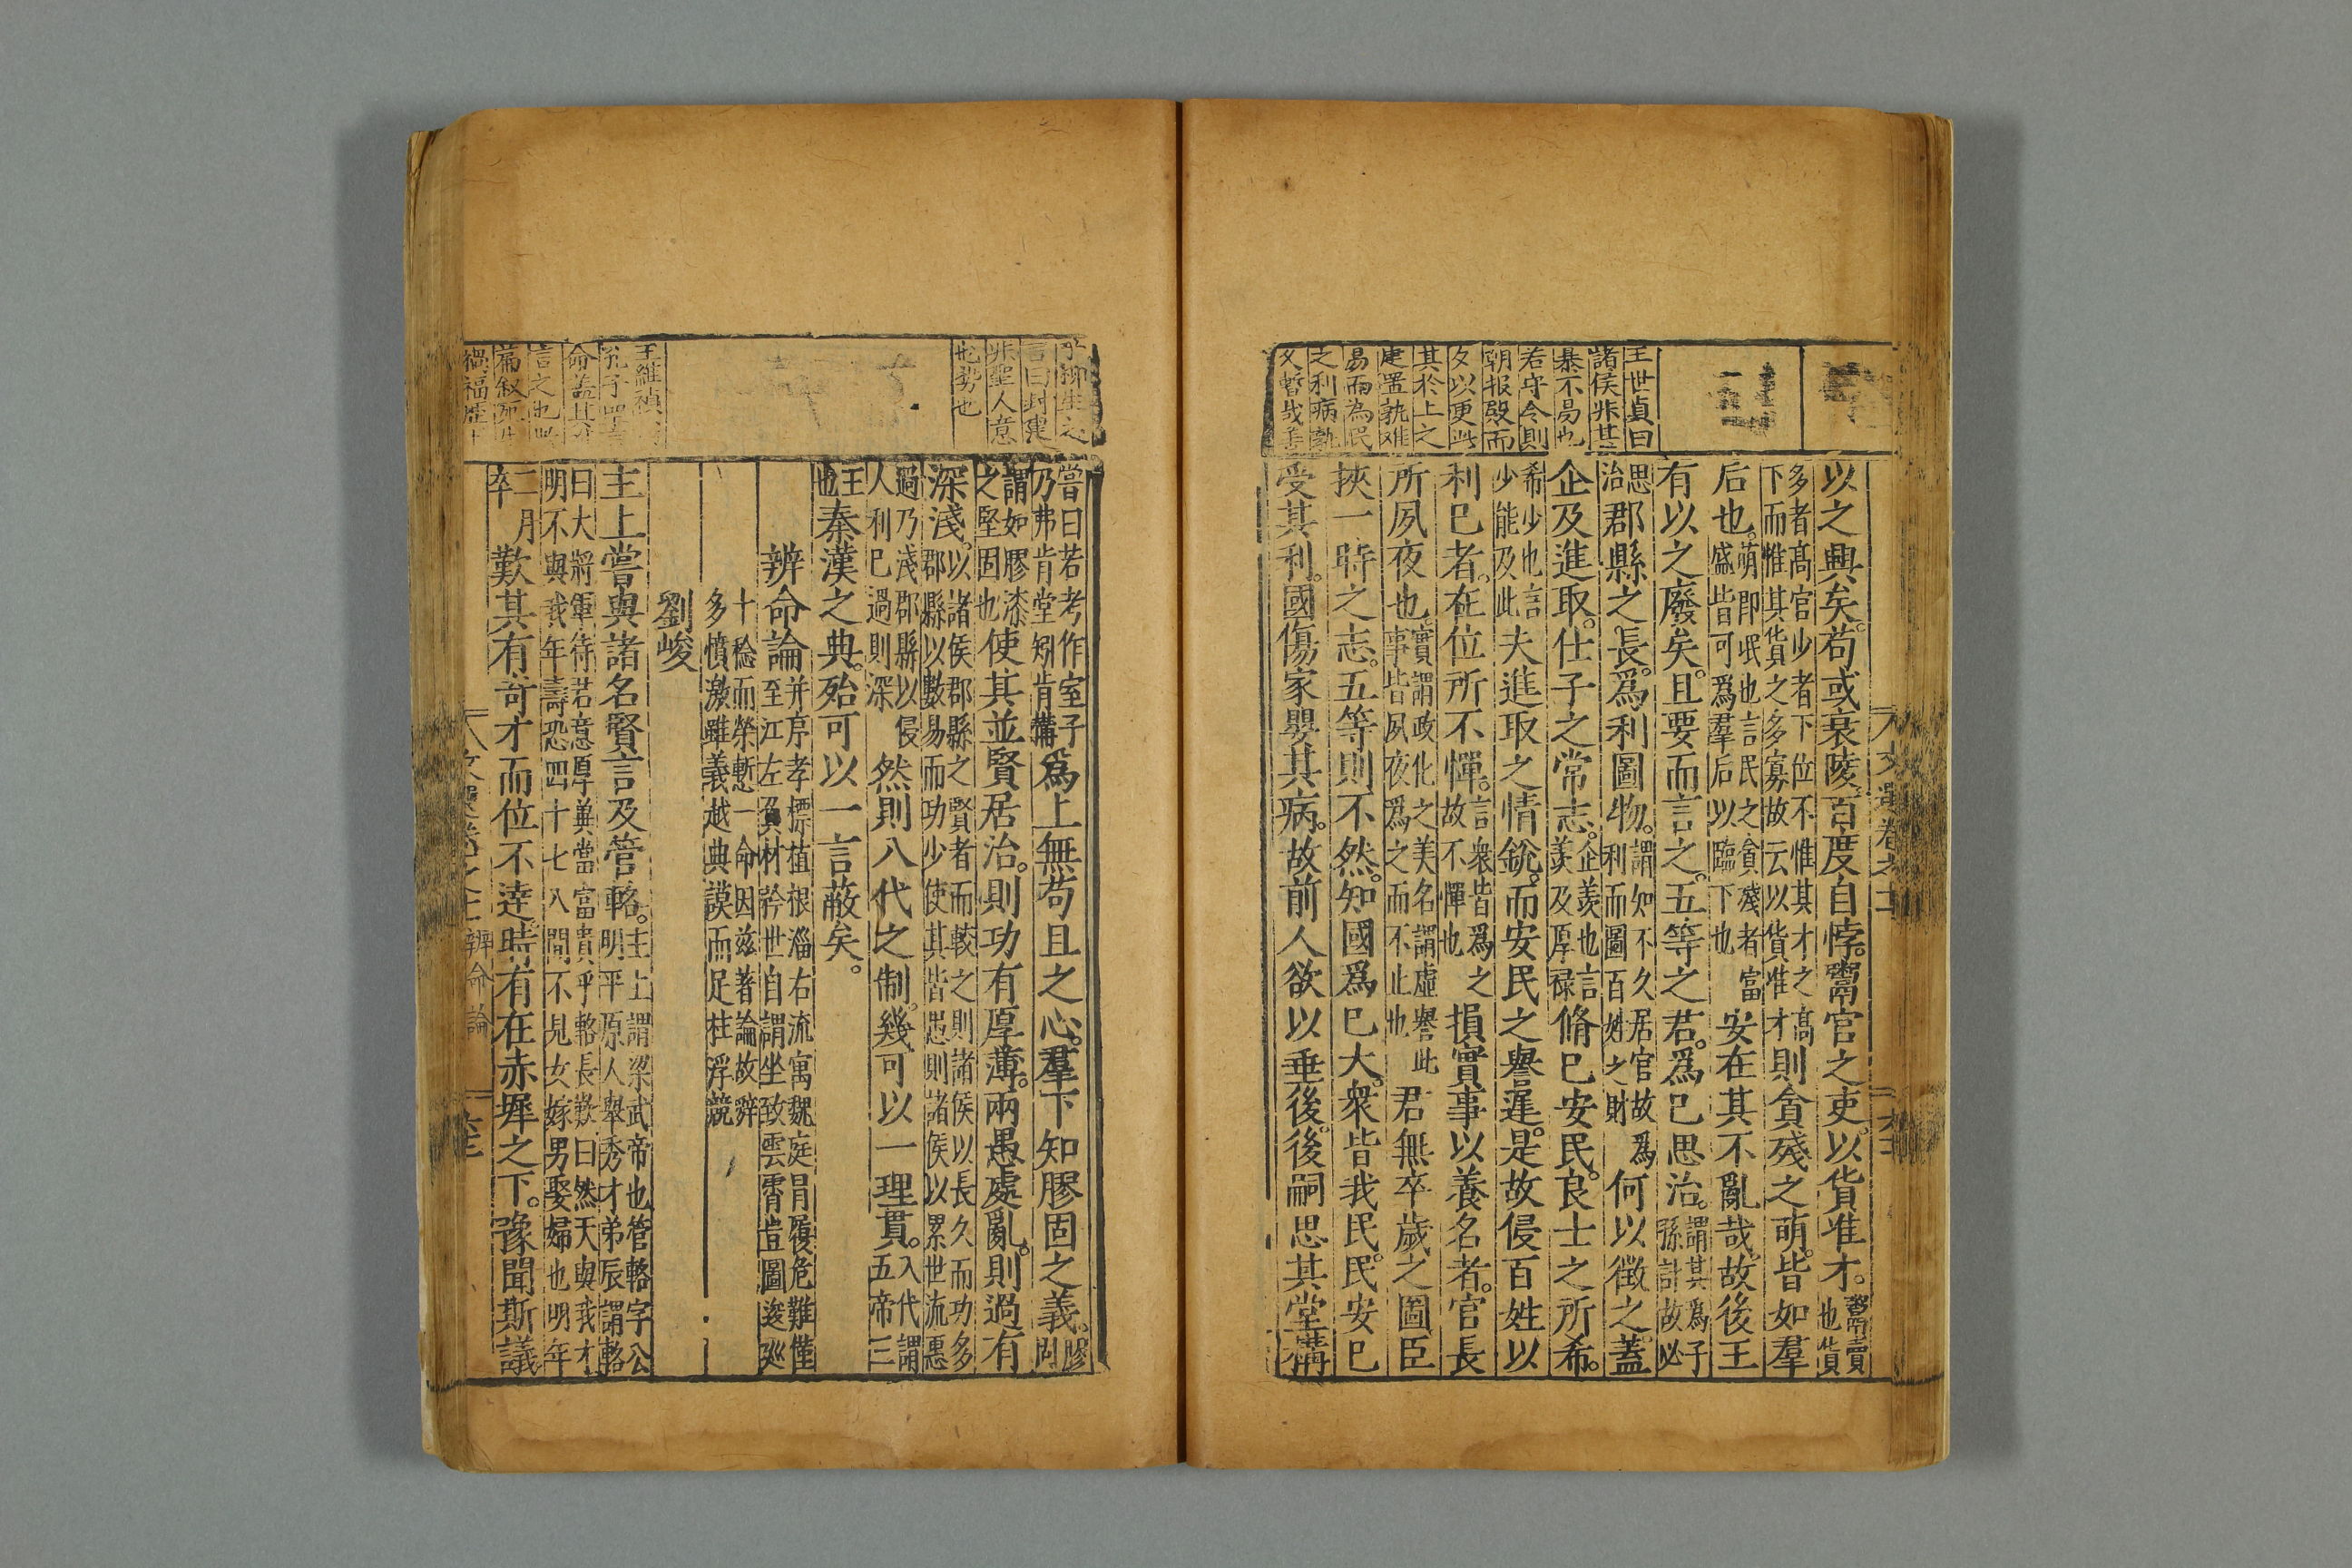 王世貞曰
諸侯非甚
暴不易也
若守令則
朝报殿而
夕以更此
其於上之
建置孰难
易而為民
之利病孰
以之興矣。苟或衰陵百度自悖。鬻官之吏。以貨准才。鬻賣也貨
多者髙官少者下位不惟其才之髙下而惟其貨之多寡故云以貨准才則貪殘之萌。皆如羣
后也。萌即氓也言民之貪殘者富盛皆可爲羣后以臨下也安在其不亂哉。故後王
有以之廢矣。且要而言之。五等之君。爲巳思治。謂其爲子孫計故必
思治郡縣之長。爲利圖物。謂知不久居官故爲利而圖百姓之財何以徴之。蓋
企及進取。仕子之常志。企羡也言羡及厚禄脩巳安民。良士之所希。
希少也言少能及此夫進取之情銳。而安民之譽遲。是故侵百姓以
利巳者。在位所不憚。言衆皆爲之故不憚也損實事以養名者。官長
所夙夜也。實謂政化之美名謂虛譽此事皆夙夜爲之而不止也君無卒歲之圖臣
挾一時之志。五等則不然。知國爲巳大。衆皆我民。民安巳
受其利。國傷家嬰其病。故前人欲以垂後。後嗣思其堂構
言曰封建
非聖人意
也势也
嘗曰若考作室子乃弗肯堂矧肯搆爲上無苟且之心。羣下知膠固之義。膠固
謂如膠漆之堅固也使其並賢居治。則功有厚薄。兩愚處亂。則過有
深淺。以諸侯郡縣之賢者而較之則諸侯以長久而功多郡縣以數易而功少使其皆愚則諸侯以累世流惡
過乃淺郡縣以侵人利巳過則深然則八代之制。幾可以一理貫。八代謂五帝三
王也秦漢之典。殆可以一言蔽矣。
辨命論并序孝標植根淄右流寓魏庭冒履危難僅至江左負材矜世自謂坐致雲霄豈圖逡巡
十稔而榮慙一命因兹著論故辭多憤激雖義越典謨而足杜浮競
劉峻
主上嘗與諸名賢言及管輅。主上謂梁武帝也管輅字公明平原人舉秀才弟辰謂輅
曰大將軍待君意厚兾當富貴乎輅長歎曰然天與我才明不與我年壽恐四十七八間不見女嫁男娶婦也明年
二月卒歎其有竒才而位不逹。時有在赤墀之下。豫聞斯議
辨命論